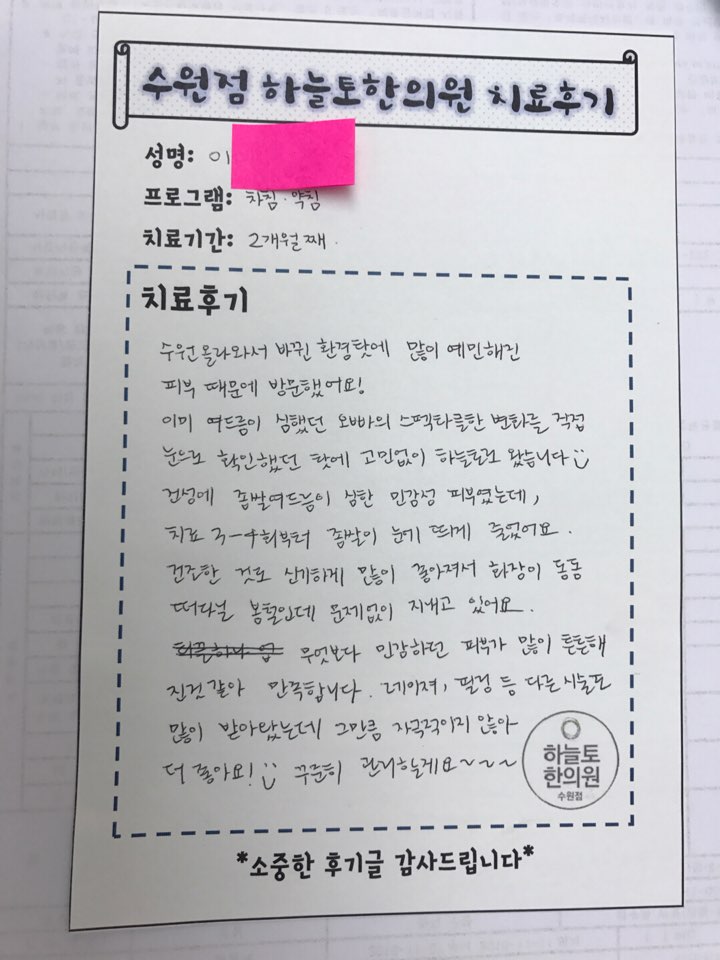 수원점 하늘토한의원 치료후기
성명: 이
프로그램: 차침·약침
치료기간: 2개월째.
치료후기
수원올라와서 바뀐 환경탓에 많이 예민해진
피부 때문에 방문했어요!
이미 여드름이 심했던 오빠의 스펙타클한 변화를 직접
눈으로 확인했던 탓에 고민없이 하늘토로 왔습니다
건성에 좁쌀여드름이 심한 민감성 피부였는데,
치료 3-4회부터 좁쌀이 눈에 띄게 줄었어요.
건조한 것도 신기하게 많이 좋아져서 화장이 동동
떠다닐 봄철인데 문제없이 지내고 있어요.
무엇보다 민감하던 피부가 많이 튼튼해
진것 같아 만족합니다. 레이져, 필링 등 다른 시술도
많이 받아왔는데 그만큼 자극적이지 않아
더 좋아요! 꾸준히 관리할게요~~~
하늘토
한의원
수원점
*소중한 후기글 감사드립니다*